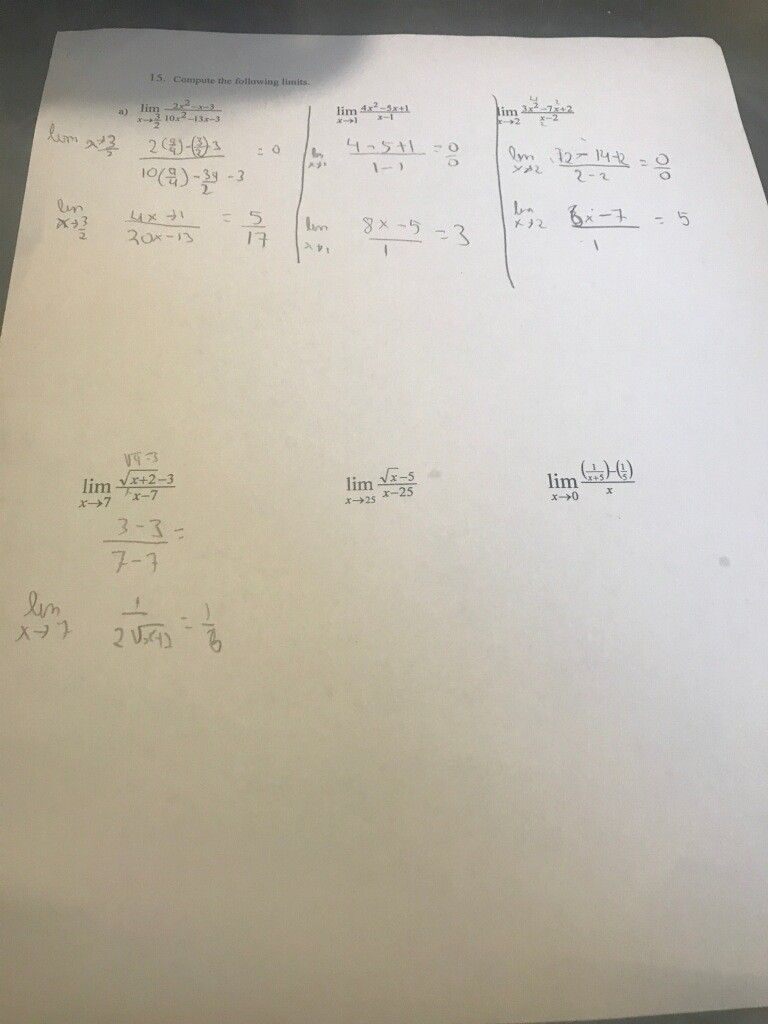 15. Compute the following limits.
a) lim x→3/2 (2x²−x−3)/(10x²−13x−3)
lim x→3/2 (2(9/4)-(3/2)-3)/(10(9/4)-39/2-3) = 0
lim x→3/2 (4x-1)/(20x-13) = 5/17
lim x→1 (4x²−5x+1)/(x−1)
(4-5+1)/(1-1) = 0/0
lim x→1 (8x-5)/1 = 3
lim x→2 (3x²−7x+2)/(x−2)
lim x→2 (12-14+2)/(2-2) = 0/0
lim x→2 (6x-7)/1 = 5
√9=3
lim x→7 (√x+2−3)/(x−7)
(3-3)/(7-7) =
lim x→7 1/(2√x+2) = 1/6
lim x→25 (√x−5)/(x−25)
lim x→0 ((1/(x+5))−(1/5))/x